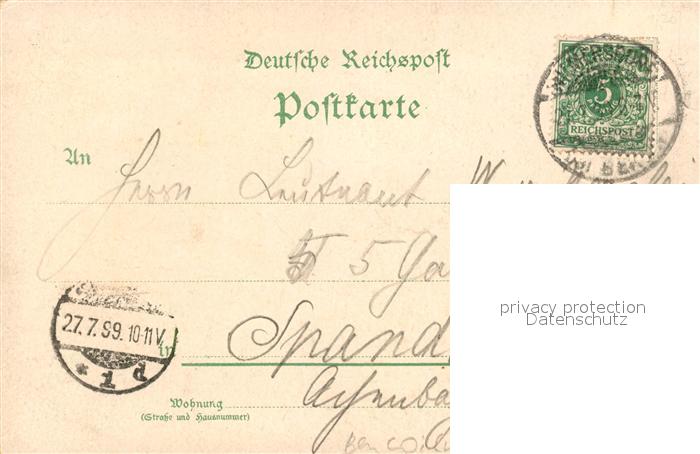 Deutsche Reichspost
Postkarte
5
REICHSPOST
WILMERSDORF
BEI BERLIN
An
Herrn Leutnant
5 Ga
privacy protection
Datenschutz
27.7.99. 10-11V.
* 1 d
in
Spand
Wohnung
(Straße und Hausnummer)